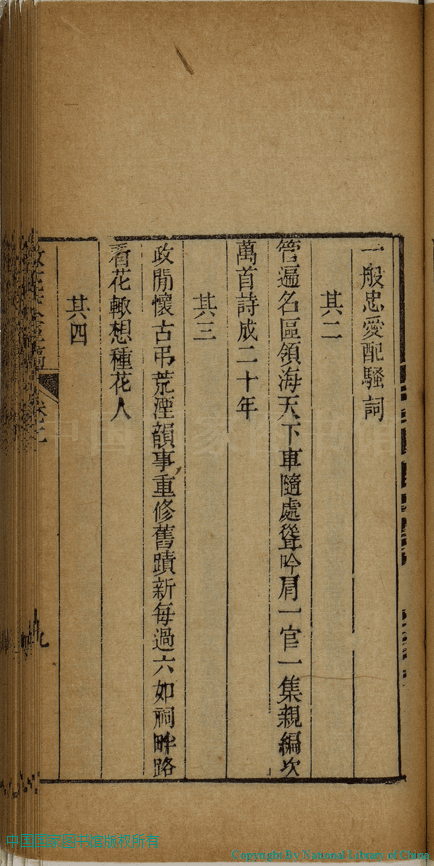 一般忠愛配騷詞
其二
管遍名區領海天下車隨處聳吟肩一官一集親編次
萬首詩成二十年
其三
政閒懷古弔荒湮韻事重修舊蹟新每過六如祠畔路
看花輙想種花人
其四
九
Copyright By National Library of China